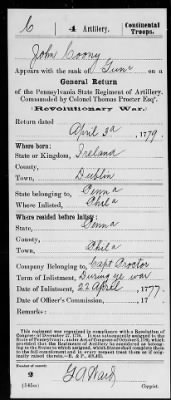 C
4 Artillery.
Continental
Troops.
John Coony
Appears with the rank of Gunr on a
General Return
of the Pennsylvania State Regiment of Artillery.
Commanded by Colonel Thomas Procter Esqr.
(Revolutionary War.)
Return dated
April 3d, 1779.
Where born:
State or Kingdom, Ireland
County,
Town, Dublin
State belonging to, Penna
Where Inlisted, Phila
Where resided before Inlisting:
State, Penna
County,
Town, Phila
Company Belonging to, Capt Proctor
Term of Inlistment, During ye war
Date of Inlistment, 22 April, 1777.
Date of Officer's Commission, 17
Remarks:
This regiment was organized in compliance with a Resolution of
Congress of December 27, 1776. It was subsequently assigned to the
State of Pennsylvania, under Act of Congress of October 3, 1780, which
provided that the Regiments of Artillery be considered as belong-
ing to the States to which they were or may be assigned, which States shall complete
Number of record:
2
G A Ward
(545c)
Copyist.